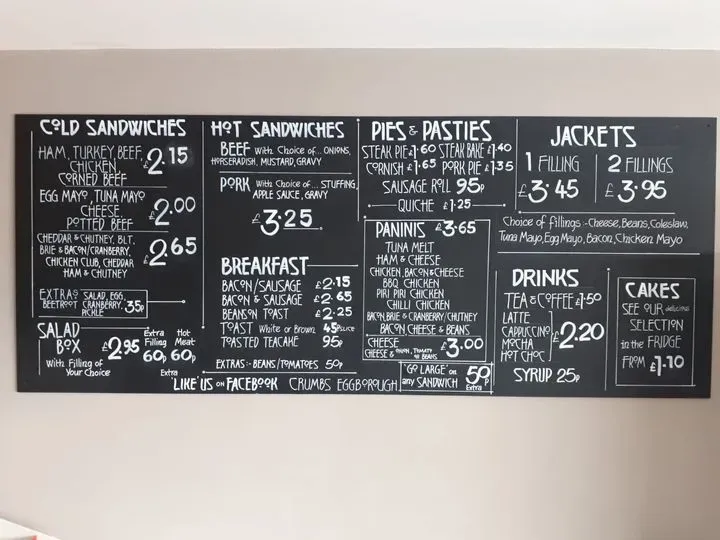 COLD SANDWICHES
HAM, TURKEY, BEEF,
CHICKEN,
CORNED BEEF
£2.15
EGG MAYO, TUNA MAYO
CHEESE,
POTTED BEEF
£2.00
CHEDDAR & CHUTNEY, BLT,
BRIE & BACON/CRANBERRY,
CHICKEN CLUB, CHEDDAR
HAM & CHUTNEY
£2.65
EXTRAS SALAD, EGG,
BEETROOT CRANBERRY,
PICKLE
35p
SALAD
BOX
£2.95
With Filling of
Your Choice
Extra
Filling
60p
Hot
Meat
60p
Extra
HOT SANDWICHES
BEEF With Choice of... ONIONS,
HORSERADISH, MUSTARD, GRAVY
PORK With Choice of... STUFFING,
APPLE SAUCE, GRAVY
£3.25
BREAKFAST
BACON/SAUSAGE £2.15
BACON & SAUSAGE £2.65
BEANS ON TOAST £2.25
TOAST White or Brown 45p SLICE
TOASTED TEACAKE 95p
EXTRAS:- BEANS/TOMATOES 50p
PIES & PASTIES
STEAK PIE £1.60 STEAK BAKE £1.40
CORNISH £1.65 PORK PIE £1.35
SAUSAGE ROLL 95p
QUICHE £1.25
PANINIS £3.65
TUNA MELT
HAM & CHEESE
CHICKEN, BACON & CHEESE
BBQ CHICKEN
PIRI PIRI CHICKEN
CHILLI CHICKEN
BACON, BRIE & CRANBERRY/CHUTNEY
BACON CHEESE & BEANS
CHEESE
CHEESE & ONION, TOMATO
OR BEANS
£3.00
'GO LARGE' on
any SANDWICH
50p
Extra
JACKETS
1 FILLING
£3.45
2 FILLINGS
£3.95
Choice of Fillings :- Cheese, Beans, Coleslaw,
Tuna Mayo, Egg Mayo, Bacon, Chicken Mayo
DRINKS
TEA & COFFEE £1.50
LATTE
CAPPUCCINO
MOCHA
HOT CHOC
£2.20
SYRUP 25p
CAKES
SEE OUR delicious
SELECTION
in the FRIDGE
FROM £1.10
'LIKE' US on FACEBOOK CRUMBS EGGBOROUGH